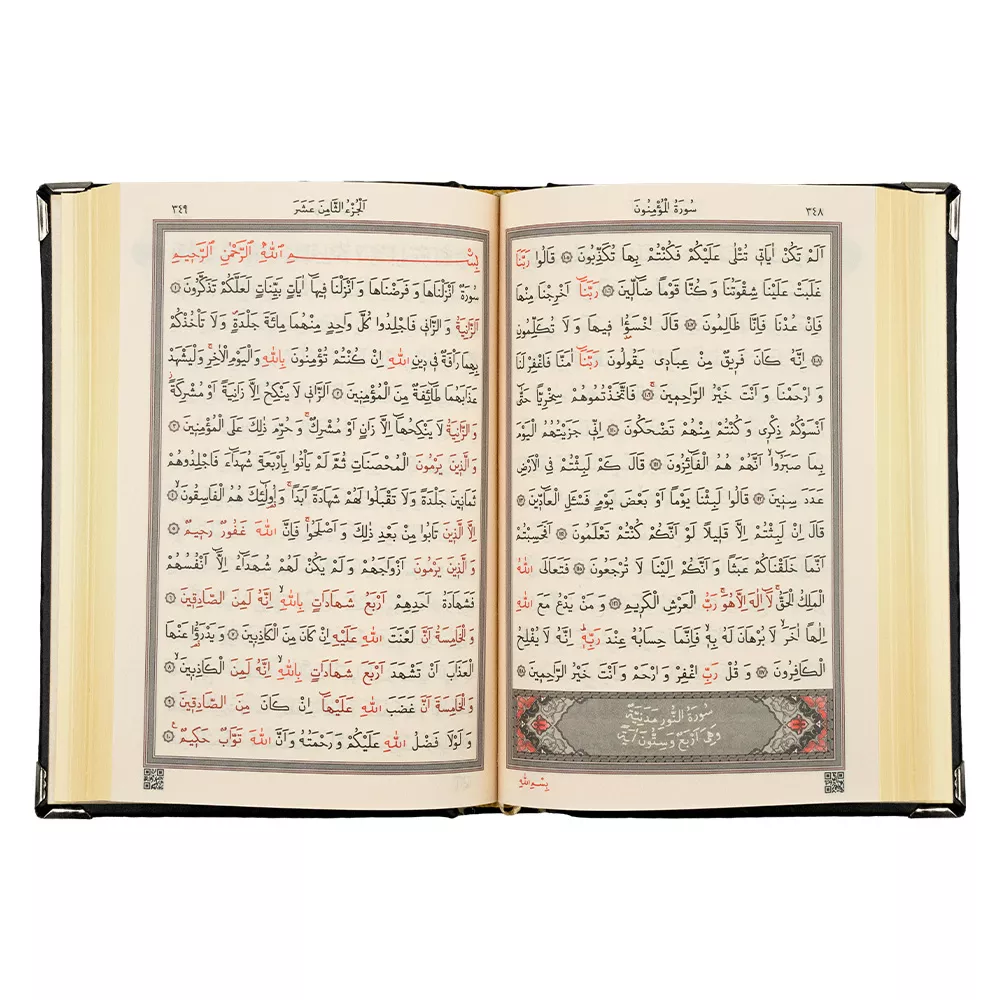 ٣٤٨
سُورَةُ الْمُؤْمِنُونَ
اَلَمْ تَكُنْ اٰيَاتٖي تُتْلٰى عَلَيْكُمْ فَكُنْتُمْ بِهَا تُكَذِّبُونَ ﴿١٠٥﴾ قَالُوا رَبَّنَا
غَلَبَتْ عَلَيْنَا شِقْوَتُنَا وَكُنَّا قَوْمًا ضَٓالّٖينَ ﴿١٠٦﴾ رَبَّنَٓا اَخْرِجْنَا مِنْهَا
فَاِنْ عُدْنَا فَاِنَّا ظَالِمُونَ ﴿١٠٧﴾ قَالَ اخْسَؤُا فٖيهَا وَلَا تُكَلِّمُونِ
﴿١٠٨﴾ اِنَّهُ كَانَ فَرٖيقٌ مِنْ عِبَادٖي يَقُولُونَ رَبَّنَٓا اٰمَنَّا فَاغْفِرْ لَنَا
وَارْحَمْنَا وَاَنْتَ خَيْرُ الرَّاحِمٖينَ ﴿١٠٩﴾ فَاتَّخَذْتُمُوهُمْ سِخْرِيًّا حَتّٰٓى
اَنْسَوْكُمْ ذِكْرٖي وَكُنْتُمْ مِنْهُمْ تَضْحَكُونَ ﴿١١٠﴾ اِنّٖي جَزَيْتُهُمُ الْيَوْمَ
بِمَا صَبَرُٓوا اَنَّهُمْ هُمُ الْفَٓائِزُونَ ﴿١١١﴾ قَالَ كَمْ لَبِثْتُمْ فِي الْاَرْضِ
عَدَدَ سِنٖينَ ﴿١١٢﴾ قَالُوا لَبِثْنَا يَوْمًا اَوْ بَعْضَ يَوْمٍ فَسْـَٔلِ الْعَٓادّٖينَ ﴿١١٣﴾
قَالَ اِنْ لَبِثْتُمْ اِلَّا قَلٖيلًا لَوْ اَنَّكُمْ كُنْتُمْ تَعْلَمُونَ ﴿١١٤﴾ اَفَحَسِبْتُمْ
اَنَّمَا خَلَقْنَاكُمْ عَبَثًا وَاَنَّكُمْ اِلَيْنَا لَا تُرْجَعُونَ ﴿١١٥﴾ فَتَعَالَى اللّٰهُ
الْمَلِكُ الْحَقُّ لَٓا اِلٰهَ اِلَّا هُوَ رَبُّ الْعَرْشِ الْكَرٖيمِ ﴿١١٦﴾ وَمَنْ يَدْعُ مَعَ اللّٰهِ
اِلٰهًا اٰخَرَ لَا بُرْهَانَ لَهُ بِهٖ فَاِنَّمَا حِسَابُهُ عِنْدَ رَبِّهٖ اِنَّهُ لَا يُفْلِحُ
الْكَافِرُونَ ﴿١١٧﴾ وَقُلْ رَبِّ اغْفِرْ وَارْحَمْ وَاَنْتَ خَيْرُ الرَّاحِمٖينَ ﴿١١٨﴾
سُورَةُ النُّورِ مَدَنِيَّةٌ
وَهِيَ اَرْبَعٌ وَسِتُّونَ اٰيَةً
بِسْمِ اللّٰهِ
اَلْجُزْءُ الثَّامِنَ عَشَرَ
٣٤٩
بِسْمِ اللّٰهِ الرَّحْمٰنِ الرَّحٖيمِ
سُورَةٌ اَنْزَلْنَاهَا وَفَرَضْنَاهَا وَاَنْزَلْنَا فٖيهَٓا اٰيَاتٍ بَيِّنَاتٍ لَعَلَّكُمْ تَذَكَّرُونَ ﴿١﴾
اَلزَّانِيَةُ وَالزَّانٖي فَاجْلِدُوا كُلَّ وَاحِدٍ مِنْهُمَا مِائَةَ جَلْدَةٍ وَلَا تَأْخُذْكُمْ
بِهِمَا رَأْفَةٌ فٖي دٖينِ اللّٰهِ اِنْ كُنْتُمْ تُؤْمِنُونَ بِاللّٰهِ وَالْيَوْمِ الْاٰخِرِ وَلْيَشْهَدْ
عَذَابَهُمَا طَٓائِفَةٌ مِنَ الْمُؤْمِنٖينَ ﴿٢﴾ اَلزَّانٖي لَا يَنْكِحُ اِلَّا زَانِيَةً اَوْ مُشْرِكَةً
وَالزَّانِيَةُ لَا يَنْكِحُهَٓا اِلَّا زَانٍ اَوْ مُشْرِكٌ وَحُرِّمَ ذٰلِكَ عَلَى الْمُؤْمِنٖينَ ﴿٣﴾
وَالَّذٖينَ يَرْمُونَ الْمُحْصَنَاتِ ثُمَّ لَمْ يَأْتُوا بِاَرْبَعَةِ شُهَدَٓاءَ فَاجْلِدُوهُمْ
ثَمَانٖينَ جَلْدَةً وَلَا تَقْبَلُوا لَهُمْ شَهَادَةً اَبَدًا وَاُولٰٓئِكَ هُمُ الْفَاسِقُونَ ﴿٤﴾
اِلَّا الَّذٖينَ تَابُوا مِنْ بَعْدِ ذٰلِكَ وَاَصْلَحُوا فَاِنَّ اللّٰهَ غَفُورٌ رَحٖيمٌ ﴿٥﴾
وَالَّذٖينَ يَرْمُونَ اَزْوَاجَهُمْ وَلَمْ يَكُنْ لَهُمْ شُهَدَٓاءُ اِلَّٓا اَنْفُسُهُمْ
فَشَهَادَةُ اَحَدِهِمْ اَرْبَعُ شَهَادَاتٍ بِاللّٰهِ اِنَّهُ لَمِنَ الصَّادِقٖينَ ﴿٦﴾
وَالْخَامِسَةُ اَنَّ لَعْنَتَ اللّٰهِ عَلَيْهِ اِنْ كَانَ مِنَ الْكَاذِبٖينَ ﴿٧﴾ وَيَدْرَؤُا عَنْهَا
الْعَذَابَ اَنْ تَشْهَدَ اَرْبَعَ شَهَادَاتٍ بِاللّٰهِ اِنَّهُ لَمِنَ الْكَاذِبٖينَ ﴿٨﴾
وَالْخَامِسَةَ اَنَّ غَضَبَ اللّٰهِ عَلَيْهَٓا اِنْ كَانَ مِنَ الصَّادِقٖينَ ﴿٩﴾
وَلَوْلَا فَضْلُ اللّٰهِ عَلَيْكُمْ وَرَحْمَتُهُ وَاَنَّ اللّٰهَ تَوَّابٌ حَكٖيمٌ ﴿١٠﴾